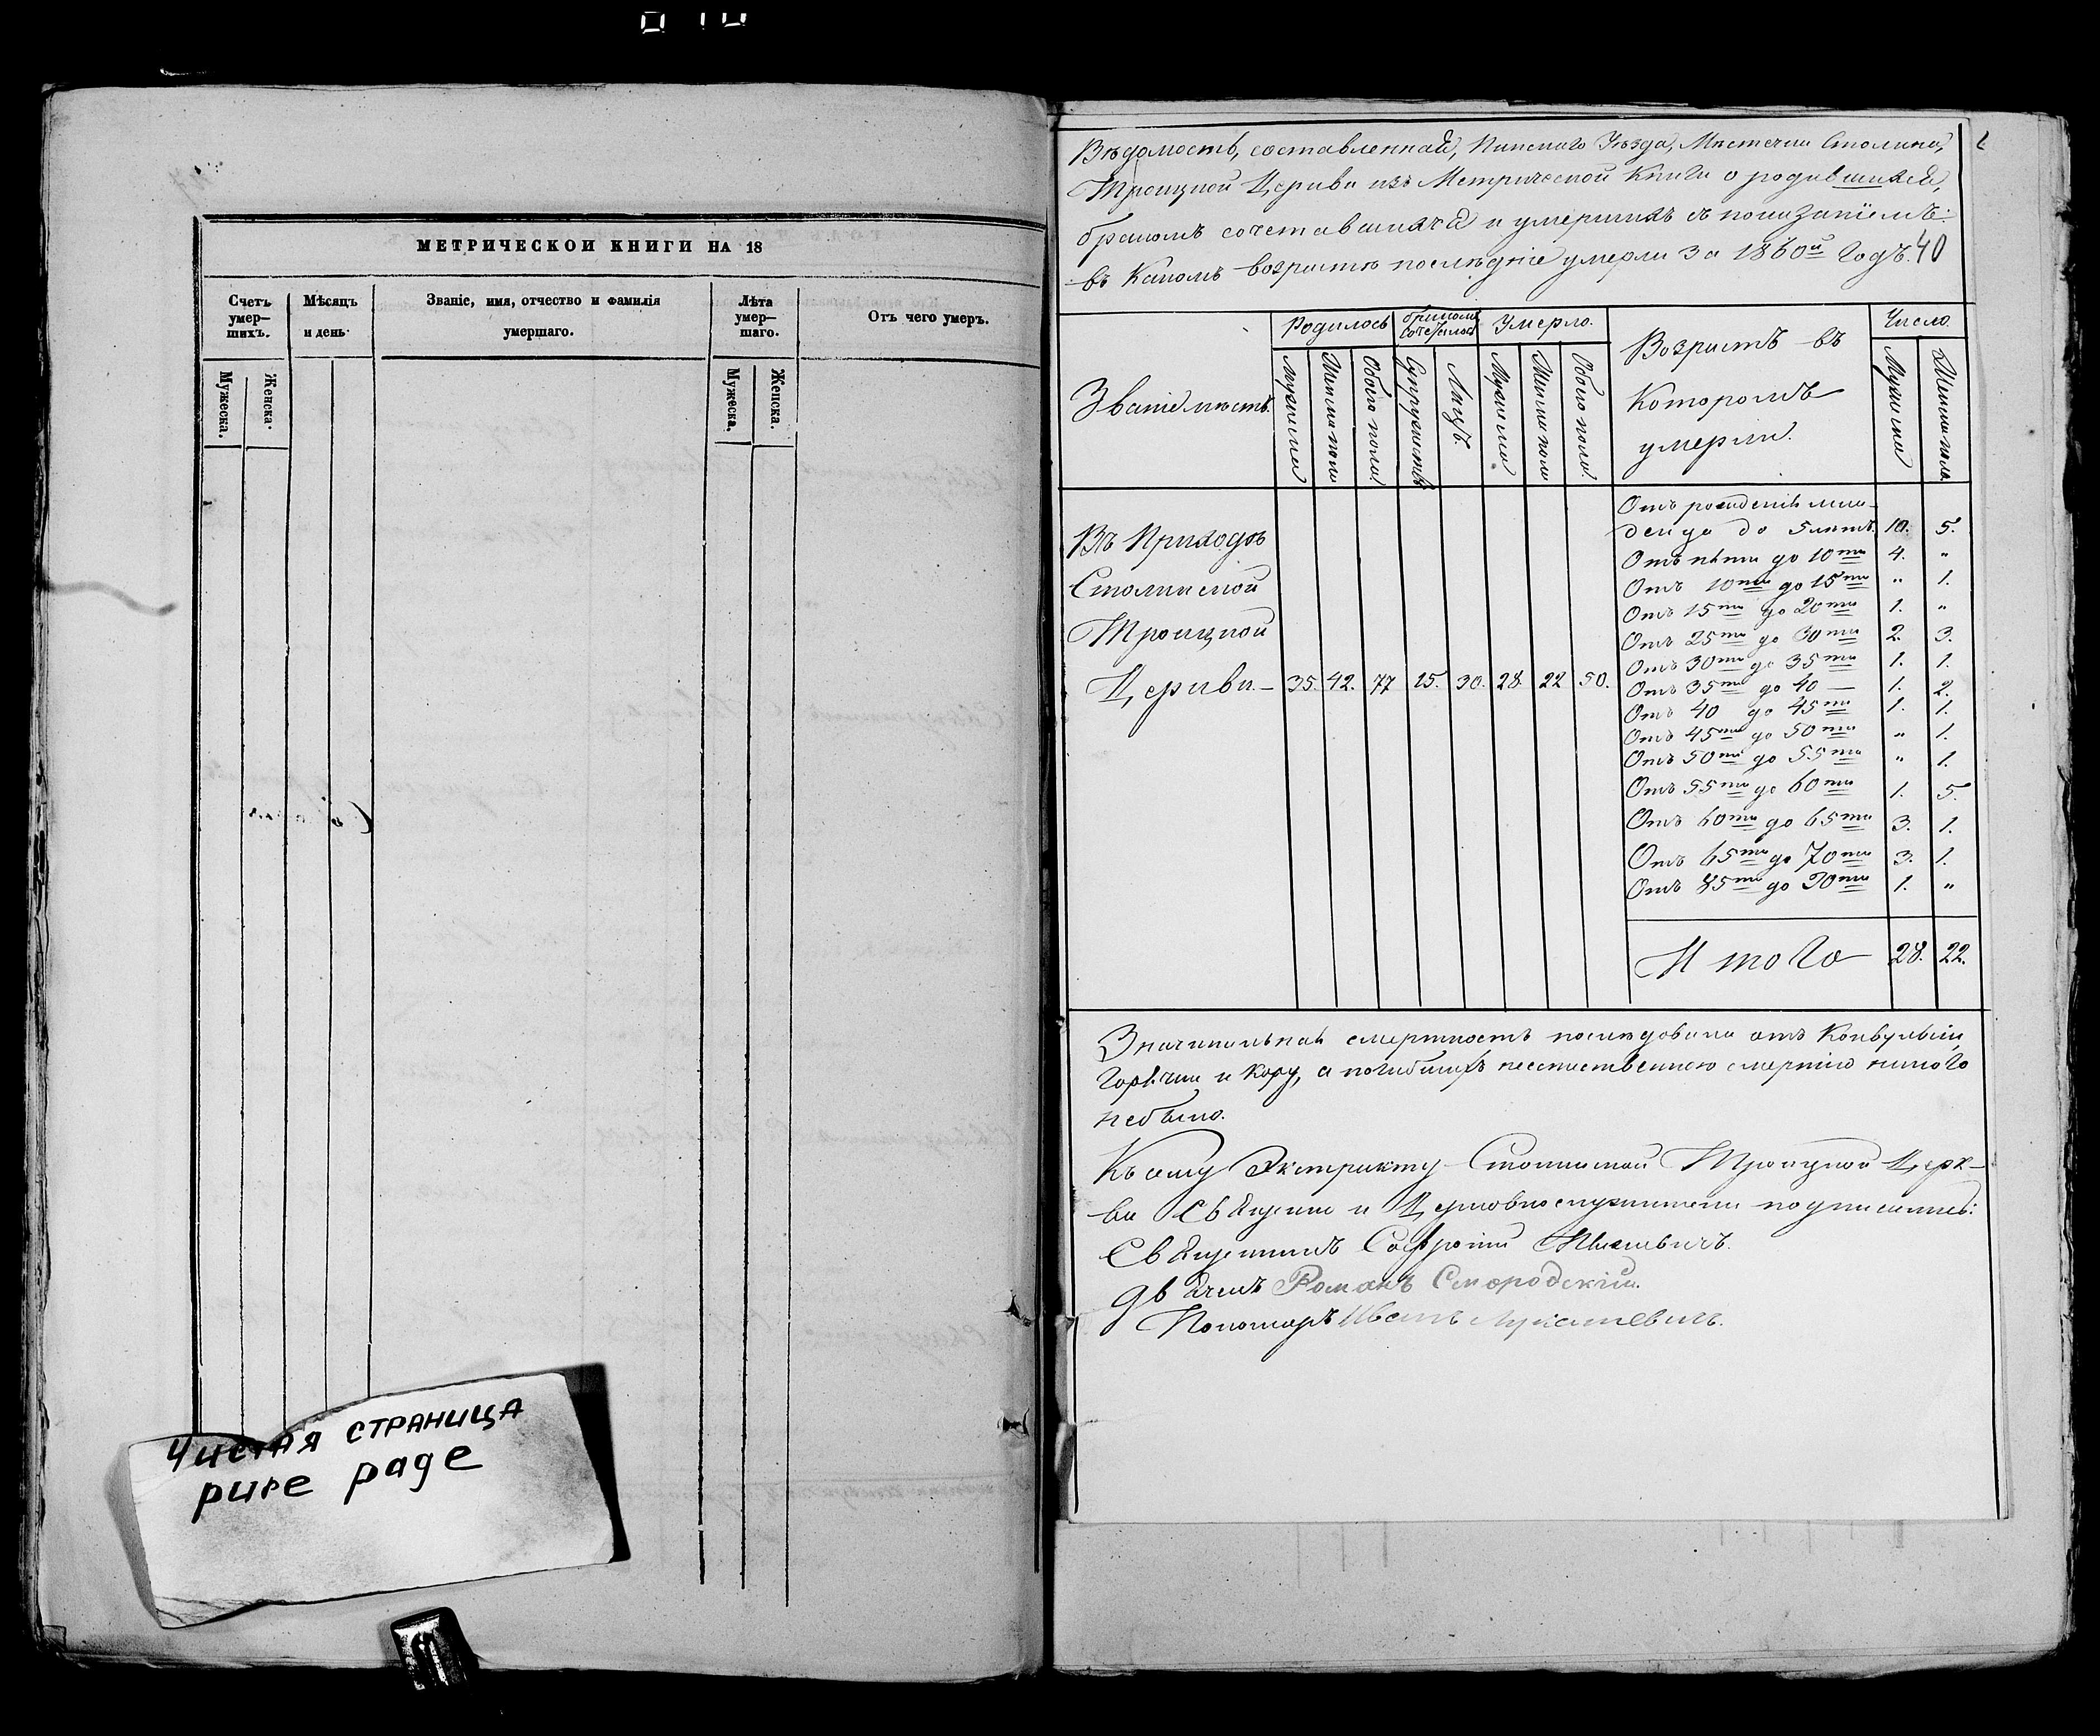 МЕТРИЧЕСКОЙ КНИГИ НА 18
Счетъ умер—шихъ.
Мѣсяцъ и день
Званіе, имя, отчество и фамилія умершаго.
Лѣта умер—шаго.
Отъ чего умеръ.
Мужеска.
Женска.
Мужеска.
Женска.
Чистая страница
pure page
Вѣдомость, составленная, Пинскаго Уѣзда, Мѣстечка Столина,
Троицкой Церкви изъ Метрической Книги о родившихся,
бракомъ сочетавшихся и умершихъ съ показаніемъ:
въ какомъ возрастѣ послѣдніе умерли за 1860й Годъ. 40
Званіе мѣстъ.
Родилось
бракомъ сочеталось
Умерло.
Возрастъ въ
Которомъ
умерли.
Число.
Мужеска
Женска пола
Обоего пола.
Супружествъ
Лицъ
Мужеска
Женска пола
Обоего пола.
Мужеска
Женска пола.
Отъ рожденія мла-
денца до 5 лѣтъ. 10. 5.
Отъ пяти до 10ти 4. "
Отъ 10ти до 15ти " 1.
Отъ 15ти до 20ти 1. "
Отъ 25ти до 30ти 2. 3.
Отъ 30ти до 35ти 1. 1.
Отъ 35ти до 40 — 1. 2.
Отъ 40 до 45ти 1. 1.
Отъ 45ти до 50ти " 1.
Отъ 50ти до 55ти " 1.
Отъ 55ти до 60ти 1. 5.
Отъ 60ти до 65ти 3. 1.
Отъ 65ти до 70ти 3. 1.
Отъ 85ти до 90ти 1. "
Въ Приходѣ
Столинской
Троицкой
Церкви.— 35. 42. 77 15. 30. 28. 22 50.
Итого 28. 22.
Значительная смертность послѣдовала отъ Конвульсіи,
Горячки и Кору, а погибшихъ неестественною смертію никого
небыло.
Къ сему Экстракту Столинской Троицкой Церк-
ви Священно и Церковнослужители подписались:
Священникъ Софроній
Дьячекъ Романъ Смородскій.
Пономарь Иванъ Лукашевичъ.